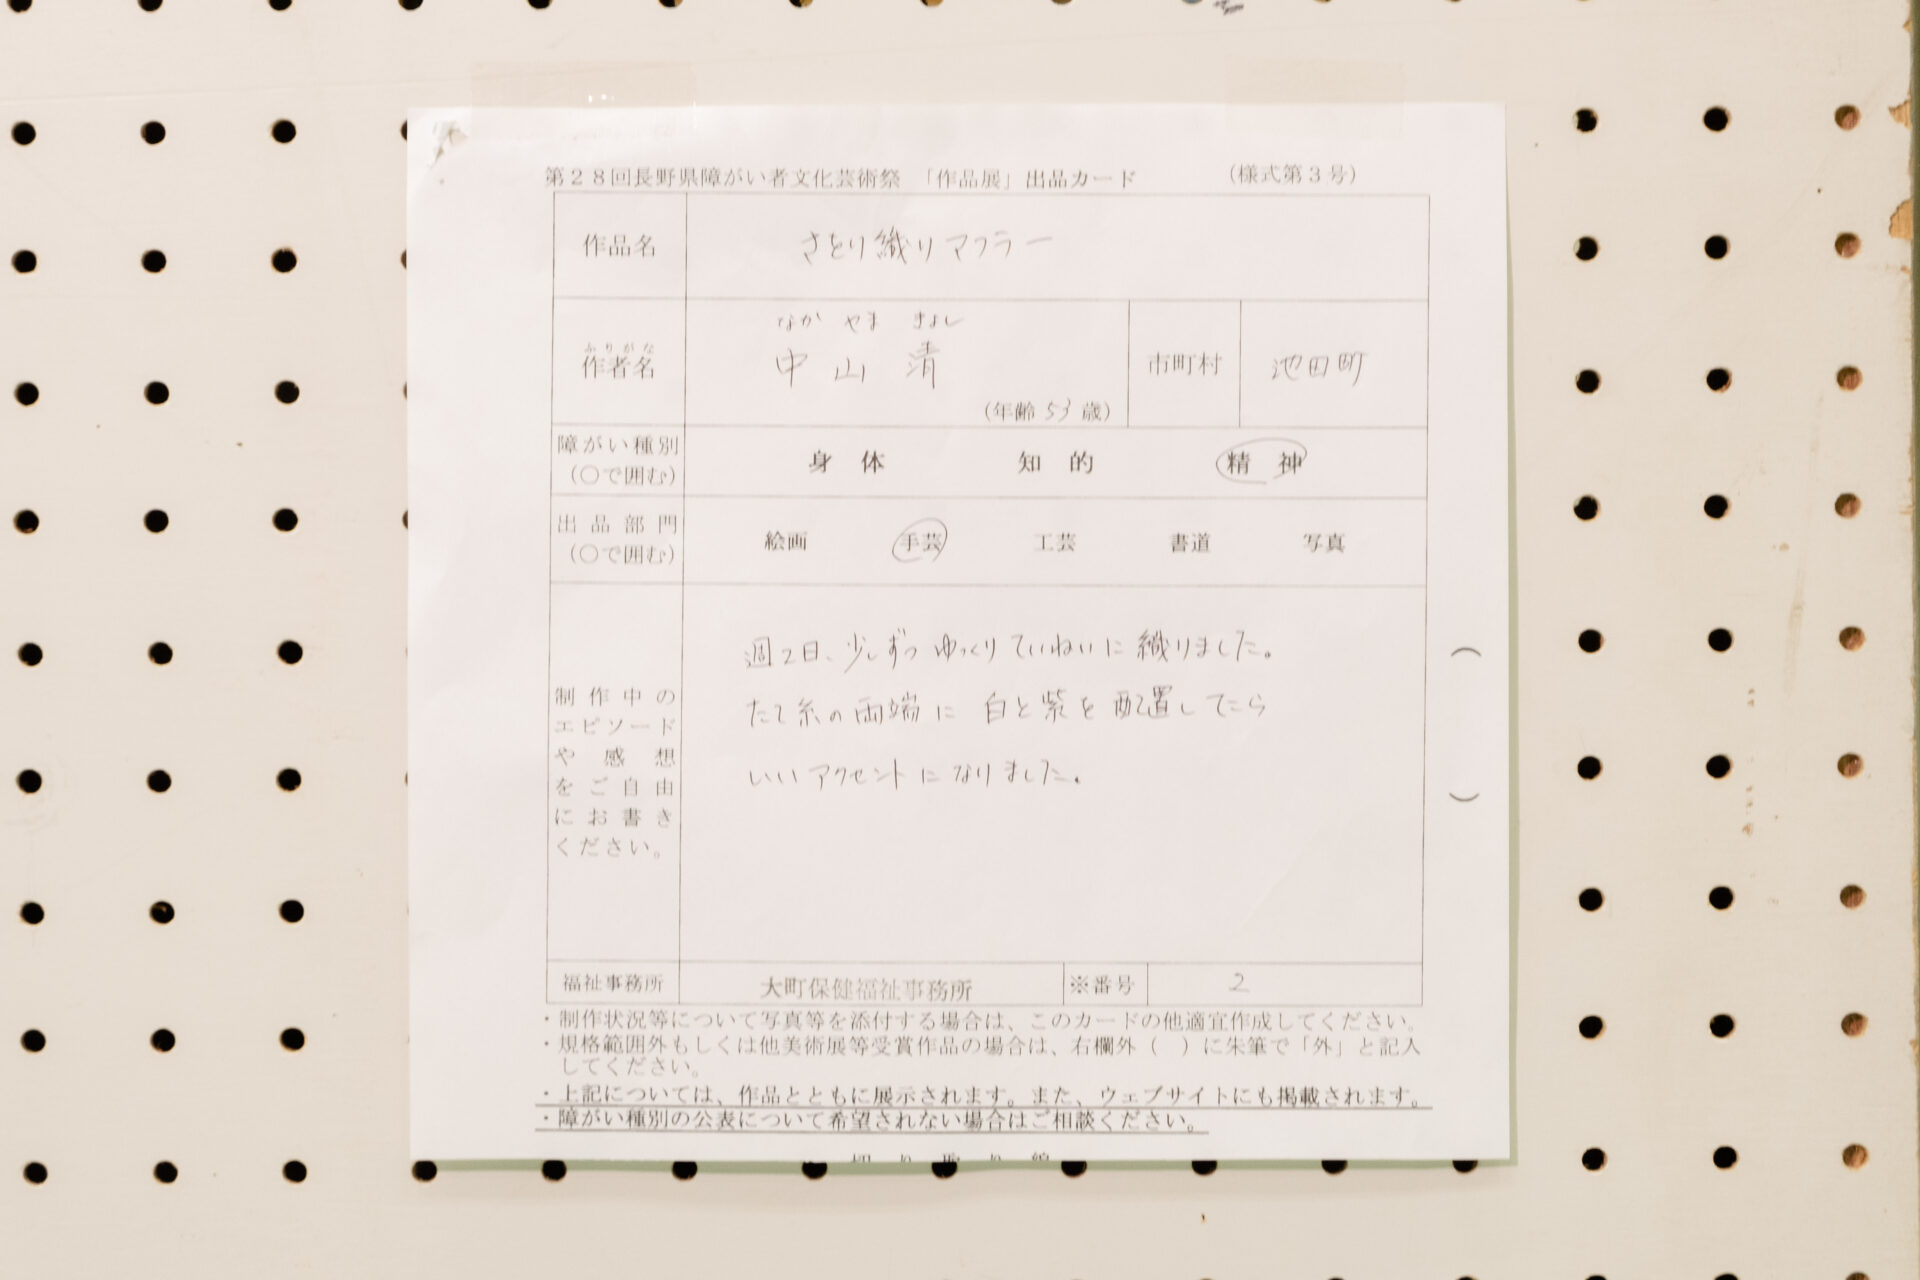 第28回長野県障がい者文化芸術祭 「作品展」出品カード (様式第3号)
作品名 さをり織りマフラー
なか やま きよし
ふりがな
作者名 中山 清 市町村 池田町
(年齢 53 歳)
障がい種別
(○で囲む) 身体 知的 精神
出品部門
(○で囲む) 絵画 手芸 工芸 書道 写真
週2日、少しずつ ゆっくり ていねいに 織りました。
たて糸の両端に 白と紫を配置してたら
いいアクセントになりました。
制作中の
エピソード
や感想
をご自由
にお書き
ください。
( )
福祉事務所 大町保健福祉事務所 ※番号 2
・制作状況等について写真等を添付する場合は、このカードの他適宜作成してください。
・規格範囲外もしくは他美術展等受賞作品の場合は、右欄外( )に朱筆で「外」と記入
してください。
・上記については、作品とともに展示されます。また、ウェブサイトにも掲載されます。
・障がい種別の公表について希望されない場合はご相談ください。
切り取り線